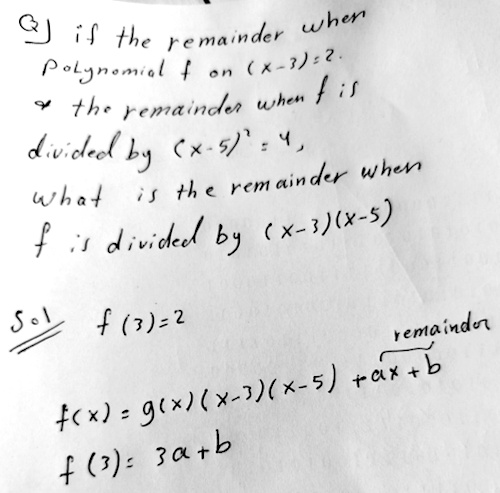 Q] if the remainder when
Polynomial f on (x-3)=2.
& the remainder when f is
divided by (x-5)² = 4,
what is the remainder when
f is divided by (x-3)(x-5)
Sol f(3)=2
remainder
f(x) = g(x)(x-3)(x-5) + ax + b
f(3) = 3a+b